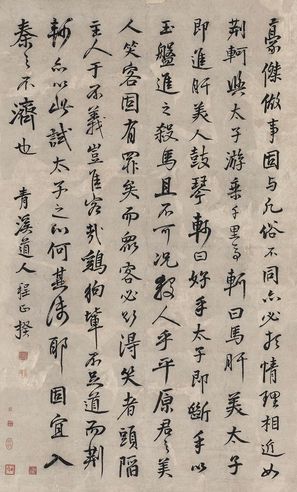 豪傑做事固与凡俗不同亦必於情理相近如
荆軻與太子游乘千里馬軻曰馬肝美太子
即進肝美人鼓琴軻曰好手太子即斷手以
玉盤進之殺馬且不可况殺人乎平原君之美
人笑客固有罪矣而眾客必以得笑者頭陷
主人于不義豈雞鳴狗輩不足道而荆
軻亦以此試太子之何甚淺耶固宜入
秦之不濟也 青溪道人程正揆